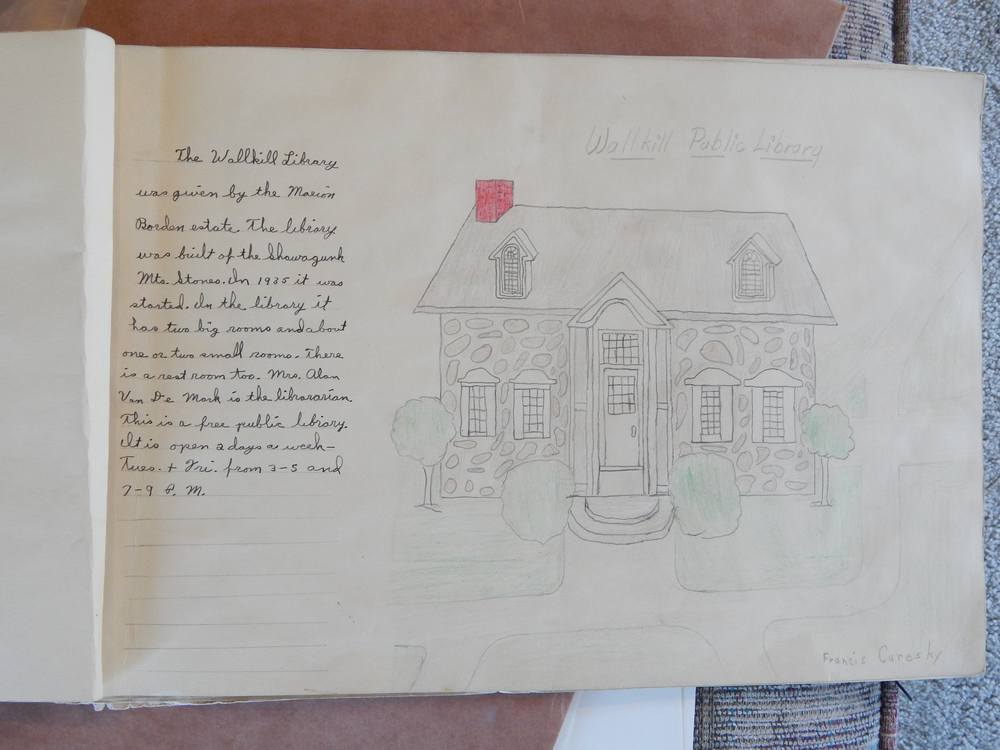 The Wallkill Library
was given by the Marion
Borden estate. The library
was built of the Shawagunk
Mts. Stones. In 1935 it was
started. In the library it
has two big rooms and about
one or two small rooms. There
is a rest room too. Mrs. Alan
Van De Mark is the librarian
This is a free public library.
It is open 2 days a week-
Tues. + Fri. from 3-5 and
7-9 P. M.
Wallkill Public Library
Francis Curesky